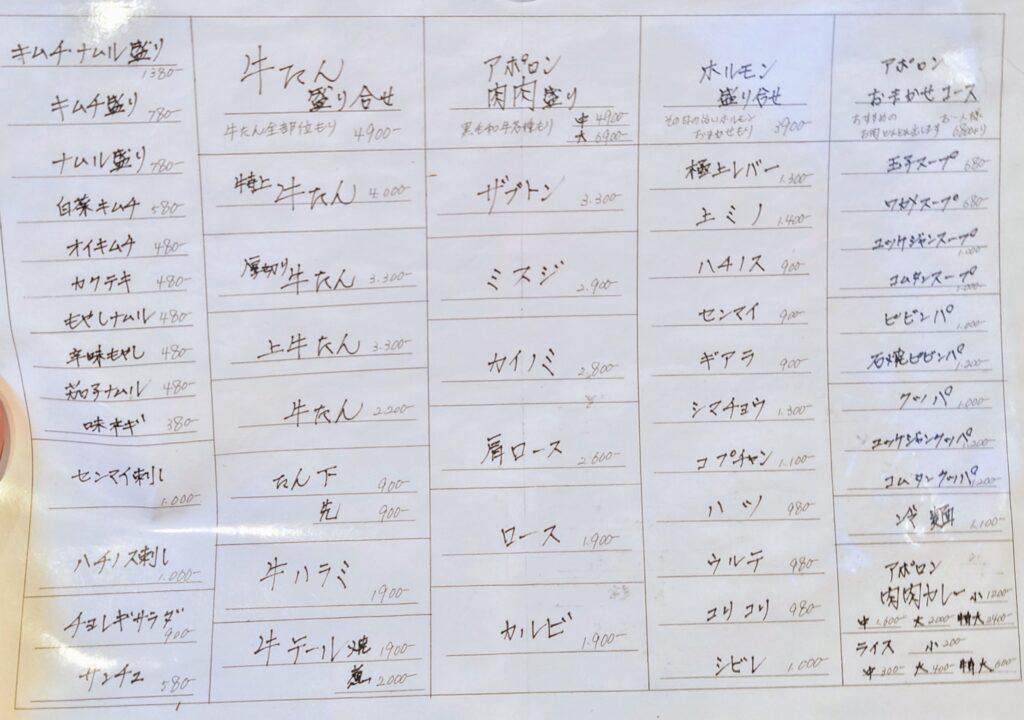 キムチ・ナムル盛り
1380-
キムチ盛り 780-
ナムル盛り 780-
白菜キムチ 580-
オイキムチ 480-
カクテキ 480-
もやしナムル 480-
辛味もやし 480-
茄子ナムル 480-
味ネギ 380-
センマイ刺し
1.000-
ハチノス刺し
1.000-
チョレギサラダ
900-
サンチュ 580-
牛たん
盛り合せ
牛たん全部位もり 4900-
特上 牛たん 4.000-
厚切り 牛たん 3.300-
上牛たん 3.300-
牛たん 2.200-
たん下 900-
先 900-
牛ハラミ
1900-
牛テール 焼 1900-
煮 2000-
アポロン
肉肉盛り
黒毛和牛各種もり 中 4900-
大 6900-
ザブトン 3.300-
ミスジ 2.900-
カイノミ 2.800-
肩ロース 2.600-
ロース 1.900-
カルビ 1.900-
ホルモン
盛り合せ
その日の旨いホルモン
おまかせもり 3900-
極上レバー 1.300-
上ミノ 1.400-
ハチノス 900-
センマイ 900-
ギアラ 900-
シマチョウ 1.300-
コプチャン 1.100-
ハツ 980-
ウルテ 980-
コリコリ 980-
シビレ 1.000-
アポロン
おまかせコース
おすすめの お一人様
お肉 6800より
玉子スープ 680-
ワカメスープ 680-
ユッケジャンスープ
1.000-
コムタンスープ
1.000-
ビビンバ 1.000-
石焼ビビンバ 1.200-
クッパ 1.000-
ユッケジャンクッパ 1.200-
コムタンクッパ 1.200-
冷麺 1.100-
アポロン
肉肉カレー 小 1200-
中 1.600- 大 2000- 特大 2400-
ライス 小 200-
中 300- 大 400- 特大 600-